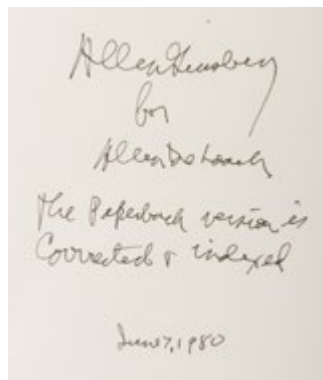 Allen Ginsberg
for
Allen De Loach
The Paperback version is
Corrected & indexed
June 7, 1980